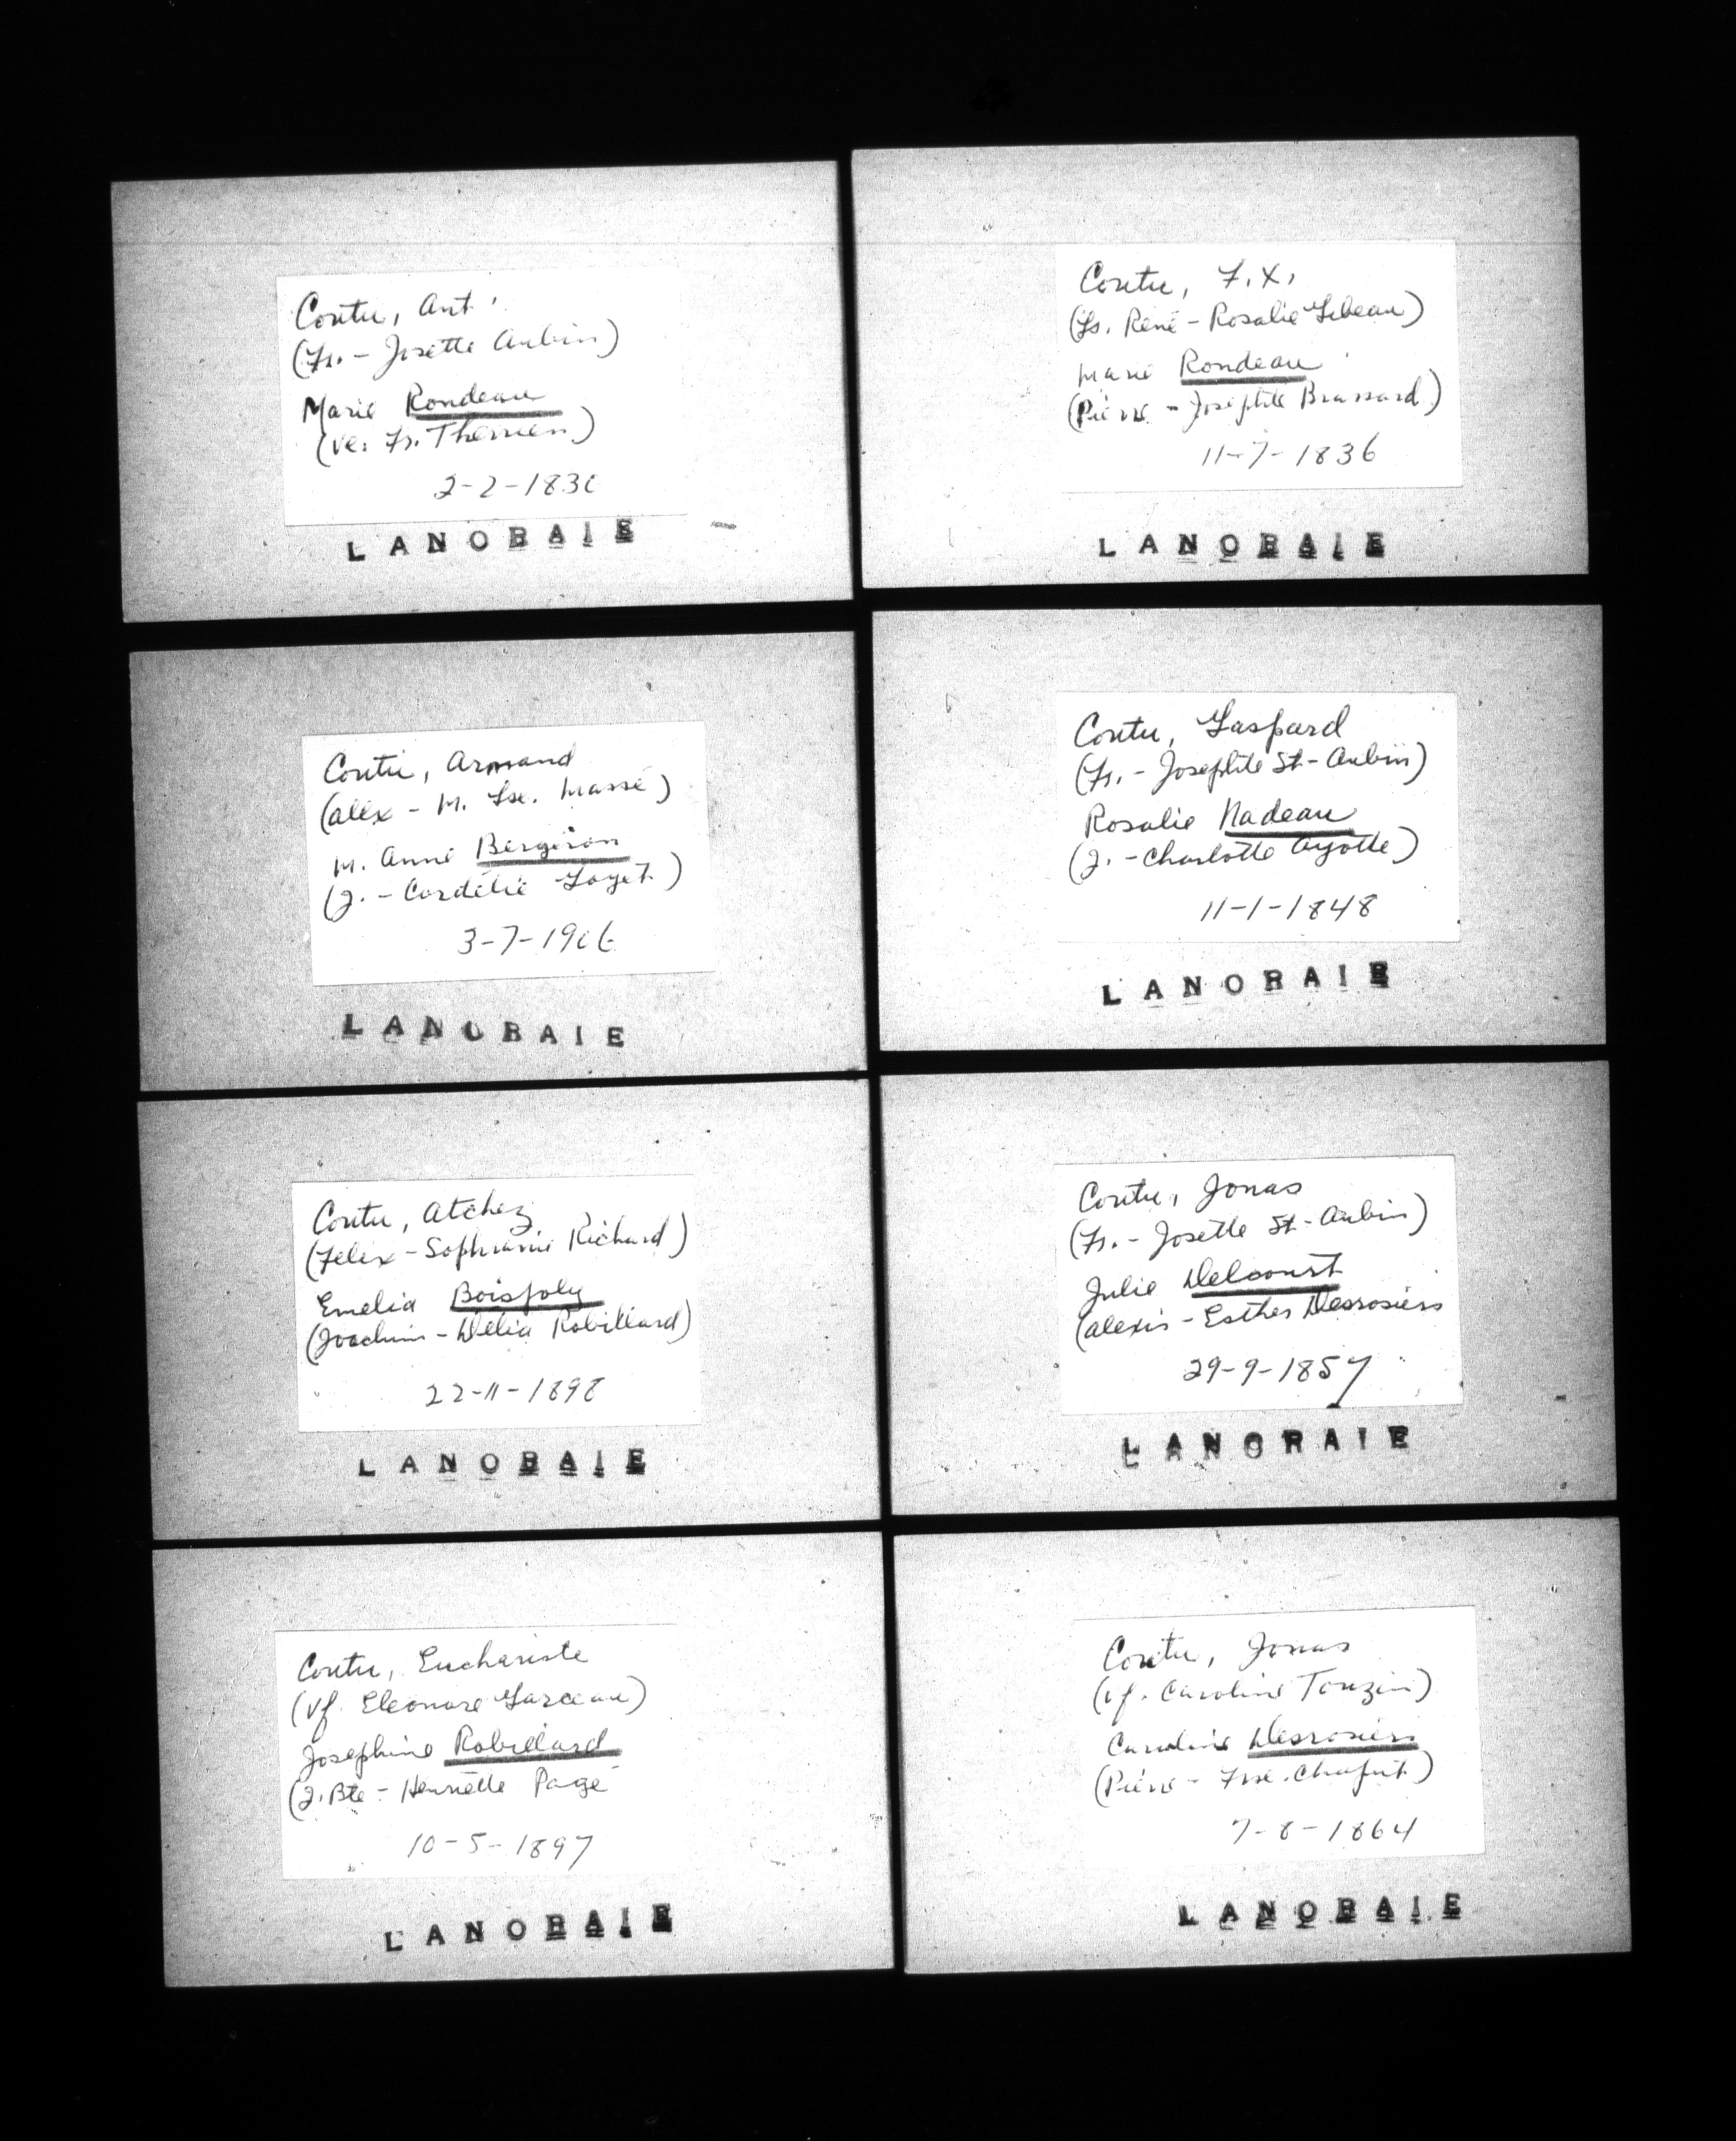 Coutu, Ant.
(Fr. - Josette Aubin)
Marie Rondeau
(Ve. Fr. Therrien)
2-2-1830
LANORAIE
Coutu, Armand
(Alex - M. Lse. Massé)
M. Anne Bergeron
(J. - Cordélie Loyet)
3-7-1906
LANORAIE
Coutu, Atchez
(Felix - Sophranie Richard)
Emelia Boisjoly
(Joachim - Délia Robillard)
22-11-1898
LANORAIE
Coutu, Euchariste
(Vf. Eleonore Garceau)
Josephine Robillard
(J. Bte - Henriette Page
10-5-1897
LANORAIE
Coutu, F. X.
(Ls. René - Rosalie Lebeau)
Marie Rondeau
(Pierre - Josephte Brassard)
11-7-1836
LANORAIE
Coutu, Gaspard
(Fr. - Josephte St-Aubin)
Rosalie Nadeau
(J. - Charlotte Ayotte)
11-1-1848
LANORAIE
Coutu, Jonas
(Fr. - Josette St-Aubin)
Julie Delcourt
(Alexis - Esther Desrosiers
29-9-1857
LANORAIE
Coutu, Jonas
(Vf. Caroline Touzin)
Caroline Desrosiers
(Pierre - Frse. Chaput)
7-8-1864
LANORAIE